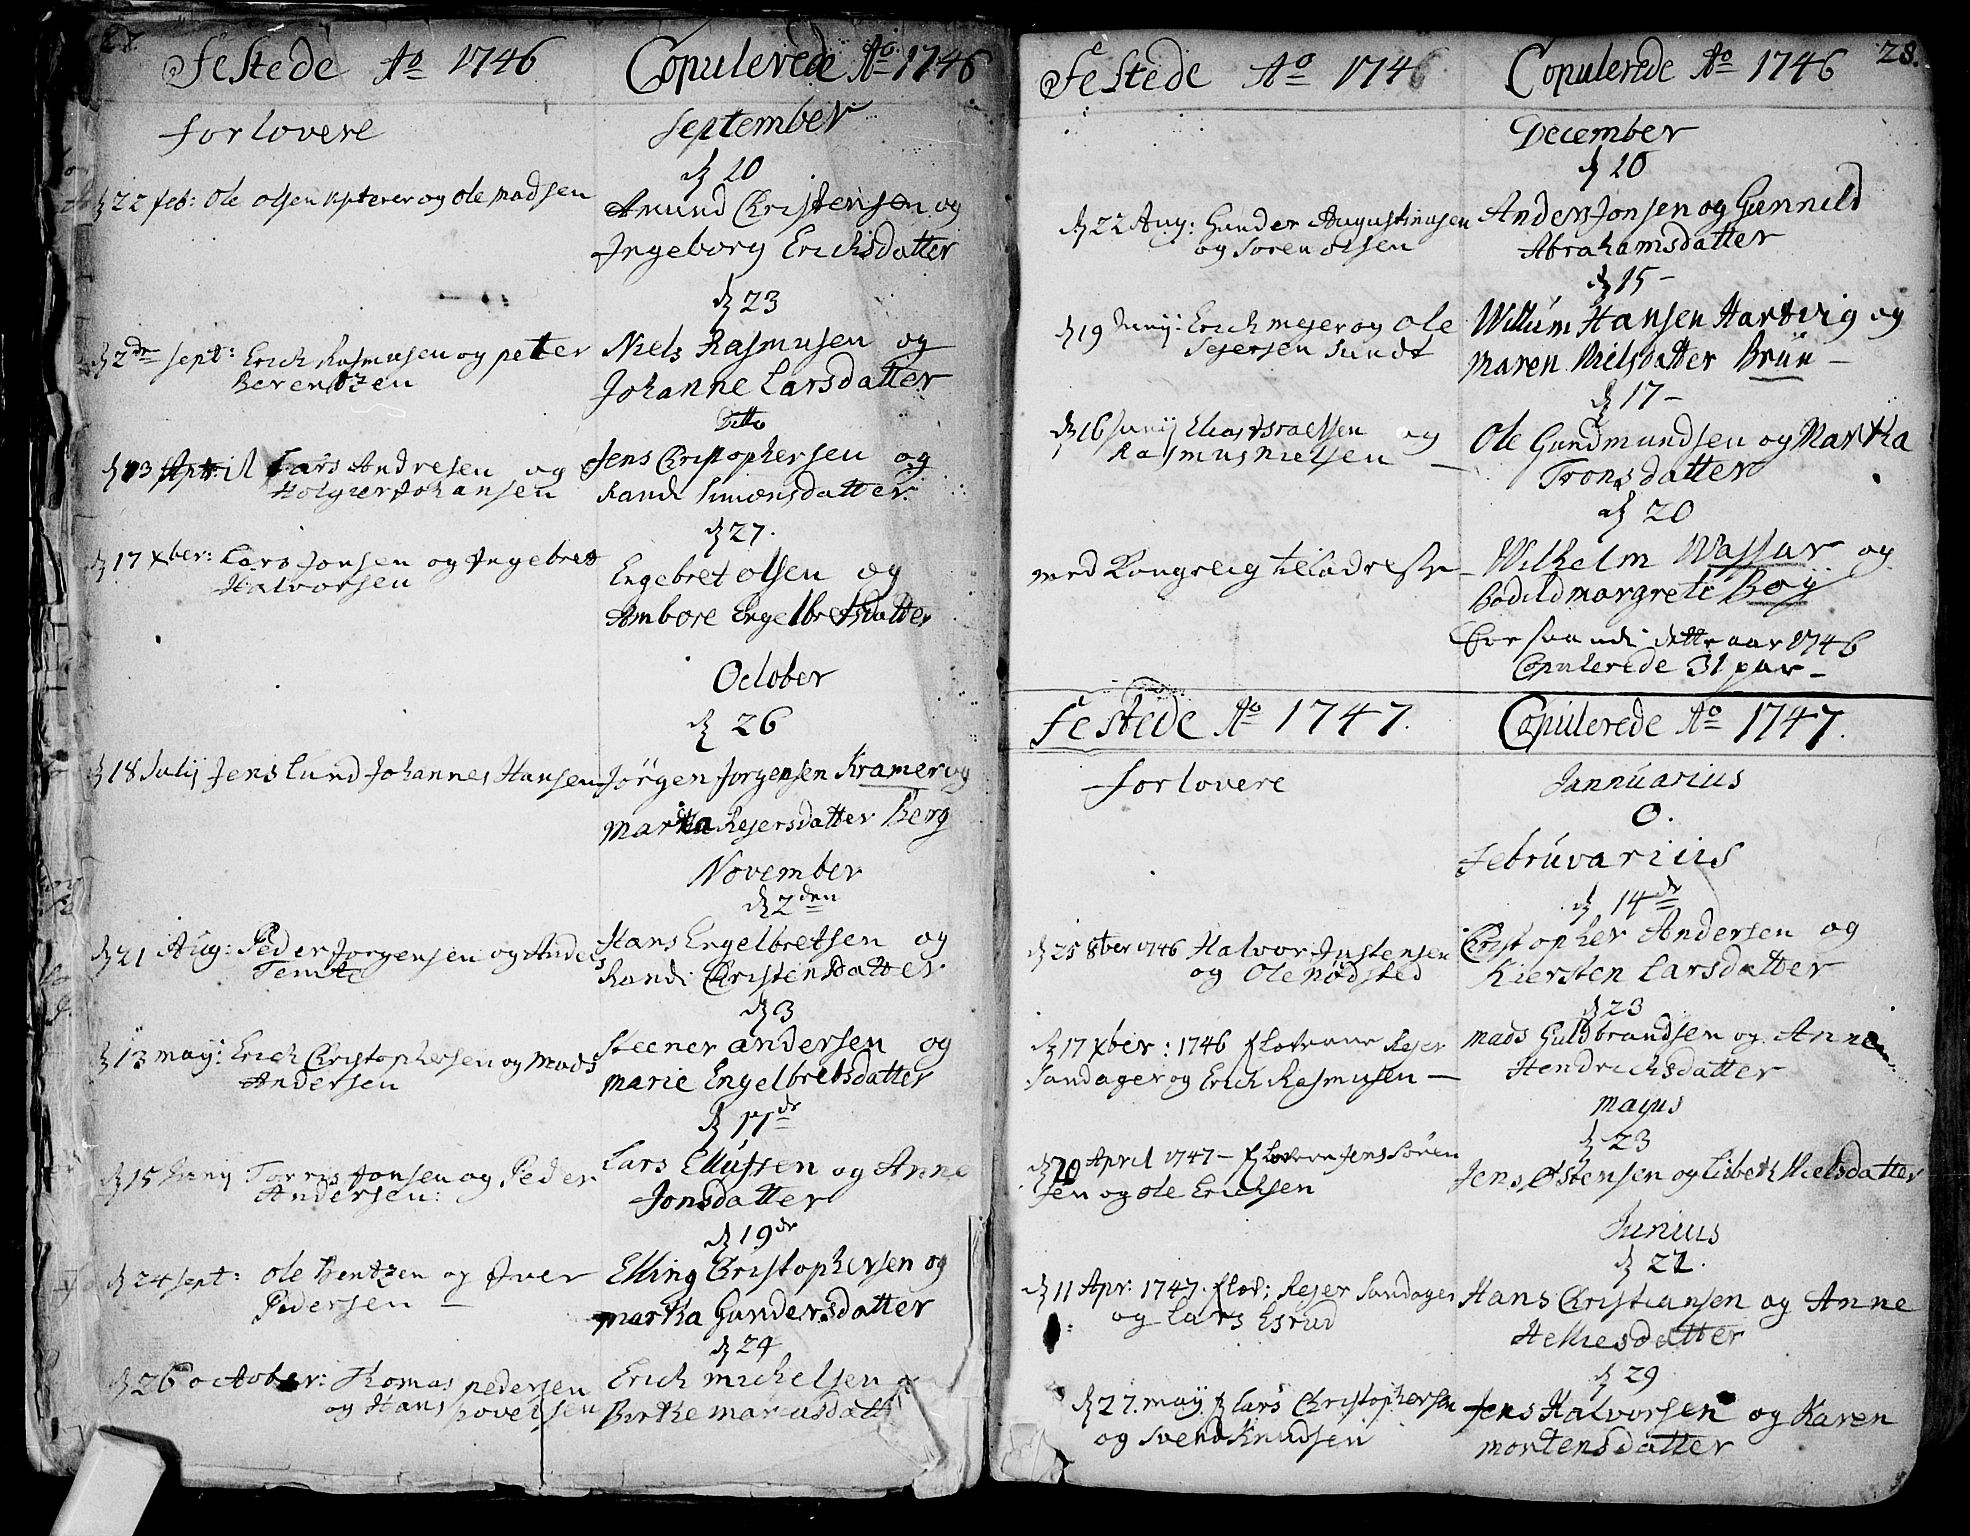 27.
Festede Ao 1746
forlovere
d 22 feb: Ole olsen og Ole Madsen
d 2dr sept: Erich Rasmusen og peter
Berentzen
d 13 April Lars Andresen og
Holgier Johansen
d 17 xber: Lars Jonsen og Ingebret
Halvorsen
d 18 Julij Jens Lund Johannes Hansen
d 21 Aug: Peder Jorgensen og Anders
d 13 maij: Erich Christophersen og Mads
Andersen
d 15 Junij Torris Jonsen og Peder
Andersen:
d 24 sept: Ole Bentzen og Iver
Pedersen
d 26 october: Thomas pedersen
og Hans povelsen
Copulerede Ao 1746
September
d 20
Amund Christensen og
Ingeborg Erichsdatter
d 23
Niels Rasmusen og
Johanne Larsdatter
Ditto
Jens Christophersen og
Randi Simonsdatter
d 27.
Engebret olsen og
Ambore Engelbretsdatter
October
d 26
Jörgen Jorgensen Kramer og
Martha Rejersdatter Berg
November
d 2den
Hans Engelbretsen og
Randi Christensdatter
d 3
Steener andersen og
marie Engelbretsdatter
d 17dr
Lars Ellufsen og Anne
Jonsdatter
d 19dr
Elling Christophersen og
martha Gundersdatter
d 24
Erich michelsen
Birthe mariusdatt
Festede Ao 1746
d 22 Aug: Gunder Augustinusen
og Soren olsen
d 19 Junij: Erich mejer og Ole
Sejersen Sundt
d 16 Junij Elias Israelsen og
Rasmus Nielsen
med Kongelig tilladelse
Copulerede Ao 1746
28.
December
d 10
Anders Jonsen og Gunnild
Abrahamsdatter
d 15
Willum Hansen Hartvig og
Maren Nielsdatter Brun
d 17
Ole Gundmundsen og Martha
Tronsdatter
d 20
Wilhelm Wassar og
Bodild margrete Boy
Ere saa udi dette aar 1746
Copulerede 31 par
Festede Ao 1747.
forlovere
d 25 8ber 1746 Halvor Justensen
og Ole Nödsted
d 17 xber: 1746 Rejer
Sandager og Erich Rasmusen
d 20 April 1747 Jens Sören
sen og Ole Erichsen
d 11 Apr: 1747. flov: Rejer Sandager
og Lars Esrud
d 27. maij Lars Christophersen
og Svend Knudsen
Copulerede Ao 1747.
Jannuarius
0.
Februvarius
d 14dr
Christopher Andersen og
Kiersten Larsdatter
d 23
mads Guldbrandsen og Anne
Hendrichsdatter
majus
d 23
Jens Østensen og Lisbeth Nielsdatter
Junius
d 22.
Hans Christiansen og Anne
Helliesdatter
d 29
Jens Halvorsen og Karen
mortensdatter